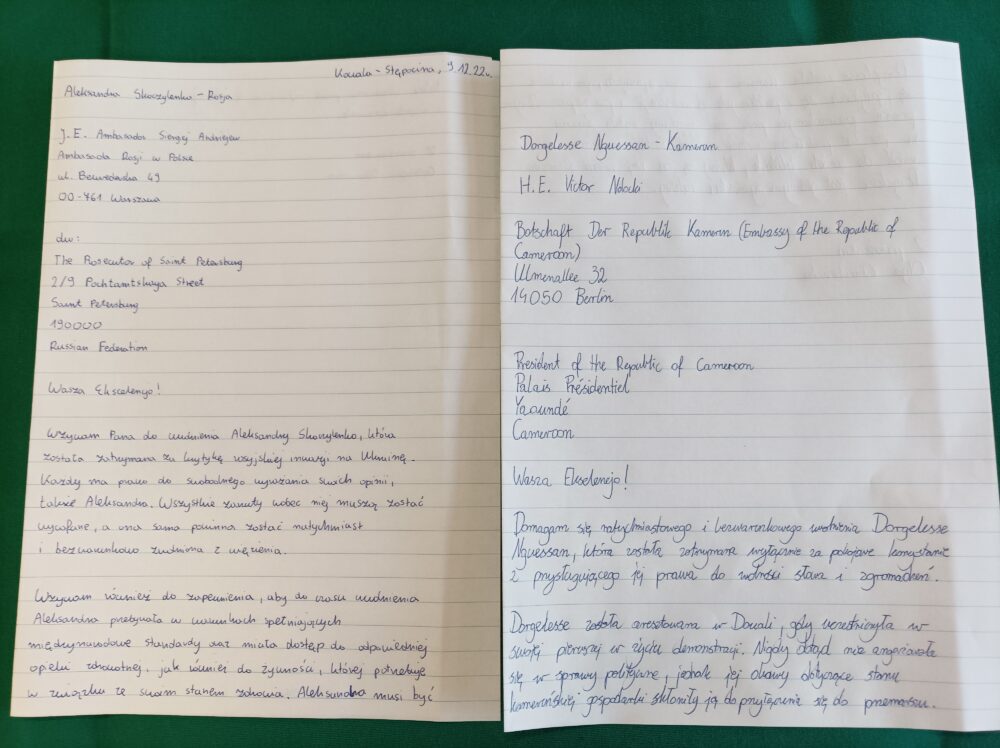 Kowala-Stępocina, 9.12.22r.
Aleksandra Skoczylenko - Rosja
J.E. Ambasador Siergiej Andriejew
Ambasada Rosji w Polsce
ul. Belwederska 49
00-761 Warszawa
dw:
The Prosecutor of Saint Petersburg
2/9 Pochtamtskaya Street
Saint Petersburg
190000
Russian Federation
Wasza Ekscelencjo!
Wzywam Pana do uwolnienia Aleksandry Skoczylenko, która
została zatrzymana za krytykę rosyjskiej inwazji na Ukrainę.
Każdy ma prawo do swobodnego wyrażania swoich opinii,
także Aleksandra. Wszystkie zarzuty wobec niej muszą zostać
wycofane, a ona sama powinna zostać natychmiast
i bezwarunkowo zwolniona z więzienia.
Wzywam również do zapewnienia, aby do czasu uwolnienia
Aleksandra przebywała w warunkach spełniających
międzynarodowe standardy oraz miała dostęp do odpowiedniej
opieki zdrowotnej, jak również do żywności, której potrzebuje
w związku ze swoim stanem zdrowia. Aleksandra musi być
Dorgelesse Nguessan - Kamerun
H.E. Victor Ndocki
Botschaft Der Republik Kamerun (Embassy of the Republic of
Cameroon)
Ulmenallee 32
14050 Berlin
President of the Republic of Cameroon
Palais Présidentiel
Yaoundé
Cameroon
Wasza Ekscelencjo!
Domagam się natychmiastowego i bezwarunkowego uwolnienia Dorgelesse
Nguessan, która została zatrzymana wyłącznie za pokojowe korzystanie
z przysługującego jej prawa do wolności słowa i zgromadzeń.
Dorgelesse została aresztowana w Douali, gdy uczestniczyła w
swojej pierwszej w życiu demonstracji. Nigdy dotąd nie angażowała
się w sprawy polityczne, jednak jej obawy dotyczące stanu
kameruńskiej gospodarki skłoniły ją do przyłączenia się do przemarszu.